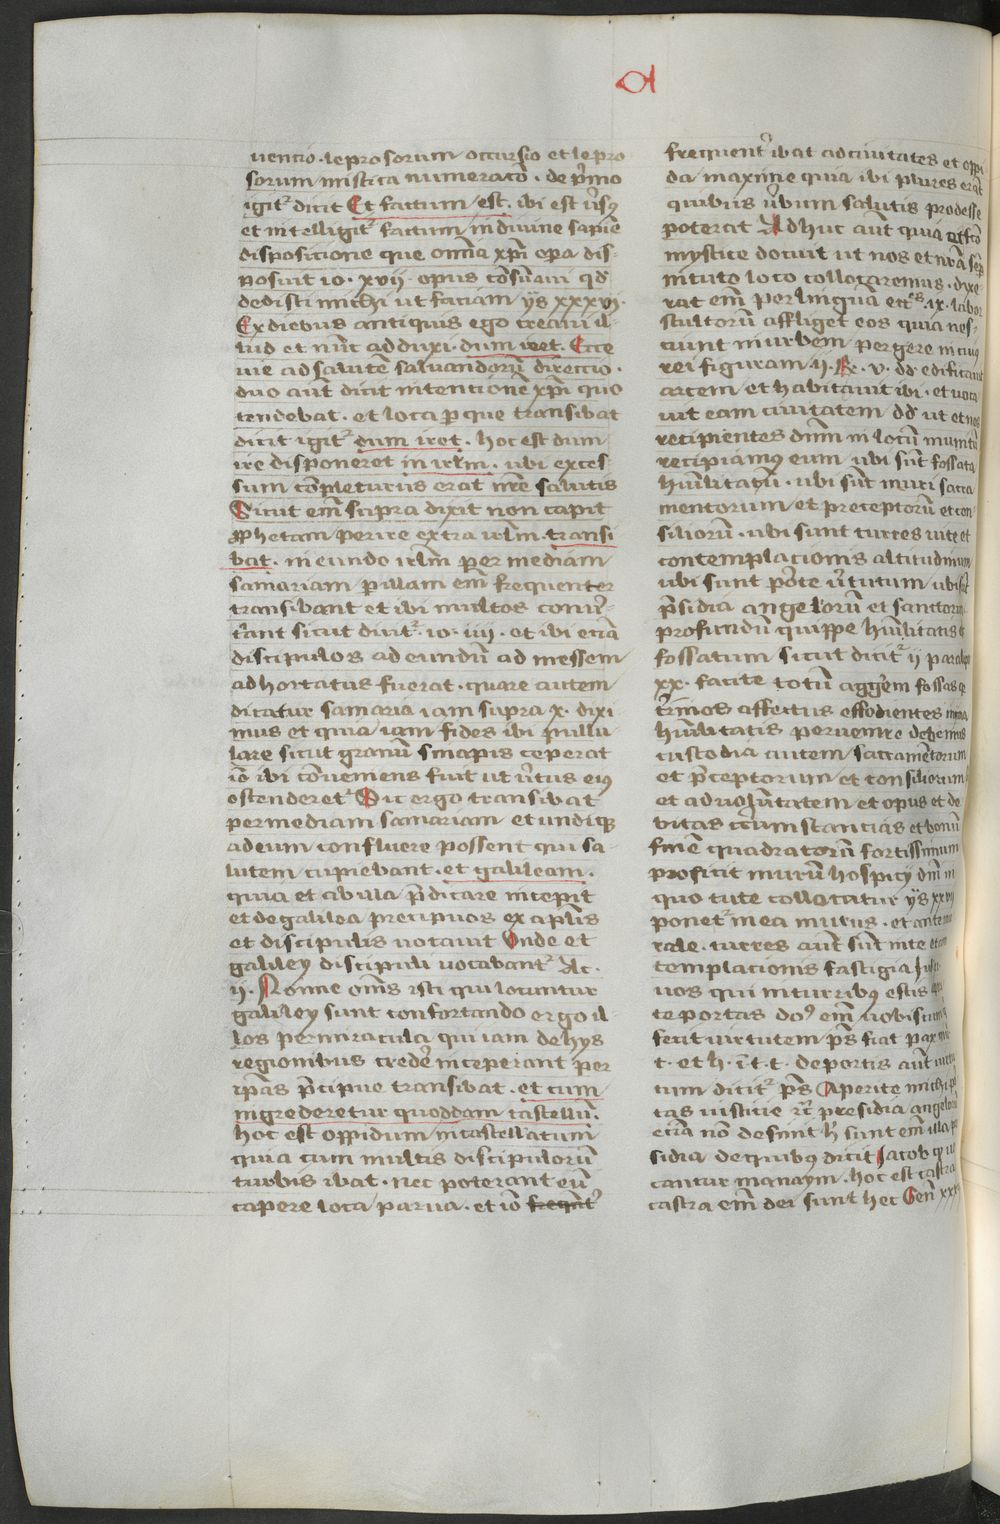 uencio . leprosorum occursio et lepro
sorum mistica numeracō . de pͥmo
igitᷣ dicit Et factum est . ibi est v̓sꝰ
et intelligitᷣ factum in divine sapiē
disposicione que om̄ia xp̄i opa dis-
posuit io . xvij . opus cōsūavi qd̓
dedisti michi ut faciam ys xxxvij .
Ex diebus antiquis ego creavi il-
lud et nūc adduxi . dum iret . Ecce
vie ad salutē salvandorū direccio .
duo aūt dicit intencionē xp̄i quo
tendebat . et loca p que transibat
dicit igitᷣ dum iret . hoc est dum
ire disponeret in irl̄m . ubi exces-
sum cōpleturus erat nr̄e salutis
Sicut em̄ supra dixit non capit
ꝓphetam perire extra irl̄m . transi
bat . in eundo irl̄m per mediam
samariam p illam em̄ frequenter
transibant et ibi multos conv̓-
t̓ant sicut dicitᷣ . io . iiij . et ibi eciā
discipulos ad eundū ad messem
adhortatus fuerat . quare autem
dicatur samaria iam supra x . dixi
mus et quia iam fides ibi pullu
lare sicut granū sinapis ceperat
iō ibi cōveniens fuit ut v̓tus eiꝰ
ostenderetᷣ Sic ergo transibat
per mediam samariam et undiqꝫ
ad eum confluere possent qui sa-
lutem cupiebant . et galileam .
quia et ab illa p̄dicare incepit
et de galilea precipuos ex aplīs
et discipulis vocavit Vnde et
galiley discipuli vocabantᷣ Ac .
ij . Nonne om̄s isti qui locuntur
galiley sunt confortando ergo il-
los per miracula qui iam de hys
regionibus creder̄ inceperant per
ip̄as p̄cipue transibat . et cum
ingrederetur quoddam castellū .
hoc est oppidum incastellatum
quia cum multis discipulorū
turbis ibat . nec poterant eū
capere loca parva . et iō freqn̄t̓
frequent̓ ibat ad civitates et oppi
da maxime quia ibi plures erāt
quibus v̓bum salutis prodesse
poterat Adhuc aūt quia effc̄o
mystice docuit ut nos et nr̄a sep̄
in tuto loco collocaremus . dixe
rat em̄ per lingua ecc̄es . x . labor
stultorū affliget eos quia nes-
ciunt in urbem pergere in cuiꝰ
rei figuram ij . R̄ . v . dd̄ edificavit
arcem et habitavit ibi . et voca
vit eam civitatem dd̄ ut et nos
recipientes dn̄m in locū munitū
recipiamꝰ eum ubi sūt fossata
hūilitatū . ubi sūt muri sacra
mentorum et preceptorū et con
siliorū . ubi sunt turres vite et
contemplacionis altitudinum
ubi sunt porte v̓tutum ubi sūt
p̄sidia angelorū et sanctorum
profundū quippe hūilitatis ē
fossatum sicut dicitᷣ ij paralipo
xx . facite totū agger̄m fossas et
t̓minos affectus effodientes in ima
hūilitatis pervenire debemus
custodia autem sacramentorum
et p̄ceptorum et consiliorum
et ad volūtatem et opus et de
bitas circumstancias et bonū
finē quadratorū fortissimum
proficit murū hospicij dn̄i in
quo tute collocatur ys xxvj
ponetᷣ in ea murus . et ante mu
rale . turres aūt sūt vite et con
templacionis fastigia Jus
vos qui in turribꝰ estis ape
te portas doꝰ em̄ nobiscum
fecit virtutem p̄s fiat pax in v̓
t . et h . ī . t . t . de portis aūt virtu
tum dicitᷣ p̄s Aperite michi por
tas iusticie rc̄ presidia angelorū
eciā nō desint h̄ sunt em̄ illa pre
sidia de quibꝰ dicit Jacob qd̓ vo
cantur manaym . hoc est castra
castra em̄ dei sunt hec Gen̄ xxxij